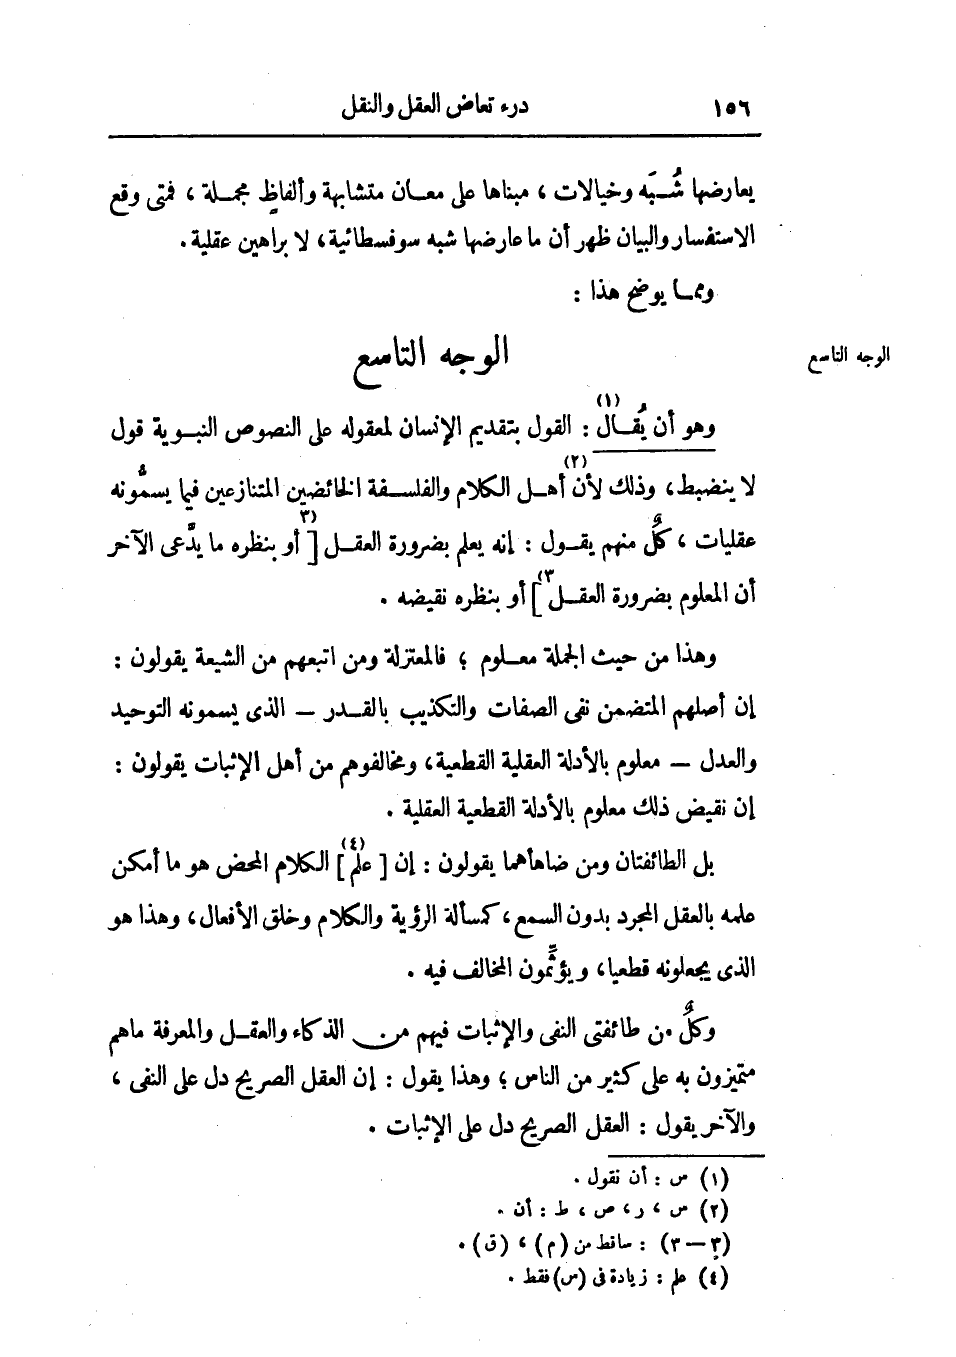 ١٥٦ درء تعاض العقل والنقل
يعارضها شُبَه وخيالات ، مبناها على معان متشابهة وألفاظٍ مجملة ، فمتى وقع
الاستفسار والبيان ظهر أن ما عارضها شبه سوفسطائية، لا براهين عقلية .
ومما يوضح هذا :
الوجه التاسع
الوجه التاسع
وهو أن يُقال(١) : القول بتقديم الإنسان لمعقوله على النصوص النبوية قول
لا ينضبط، وذلك لأن(٢) أهل الكلام والفلسفة الخائضين المتنازعين فيما يسمُّونه
عقليات ، كلٌّ منهم يقول : إنه يعلم بضرورة العقل [(٣ أو بنظره ما يدَّعى الآخر
أن المعلوم بضرورة العقل٣)] أو بنظره نقيضه .
وهذا من حيث الجملة معلوم ؛ فالمعتزلة ومن اتبعهم من الشيعة يقولون :
إن أصلهم المتضمن نفى الصفات والتكذيب بالقدر – الذى يسمونه التوحيد
والعدل – معلوم بالأدلة العقلية القطعية، ومخالفوهم من أهل الإثبات يقولون :
إن نقيض ذلك معلوم بالأدلة القطعية العقلية .
بل الطائفتان ومن ضاهأهما يقولون : إن [ علم(٤)] الكلام المحض هو ما أمكن
علمه بالعقل المجرد بدون السمع، كمسألة الرؤية والكلام وخلق الأفعال، وهذا هو
الذى يجعلونه قطعيا، ويؤثِّمون المخالف فيه .
وكلٌّ من طائفتى النفى والإثبات فيهم من الذكاء والعقل والمعرفة ماهم
متميزون به على كثير من الناس ؛ وهذا يقول : إن العقل الصريح دل على النفى ،
والآخر يقول : العقل الصريح دل على الإثبات .
(١) س : أن نقول .
(٢) س ، ر، ص ، ط : أن .
(٣ – ٣) : ساقط من (م) ، (ق) .
(٤) علم : زيادة فى (س) فقط .